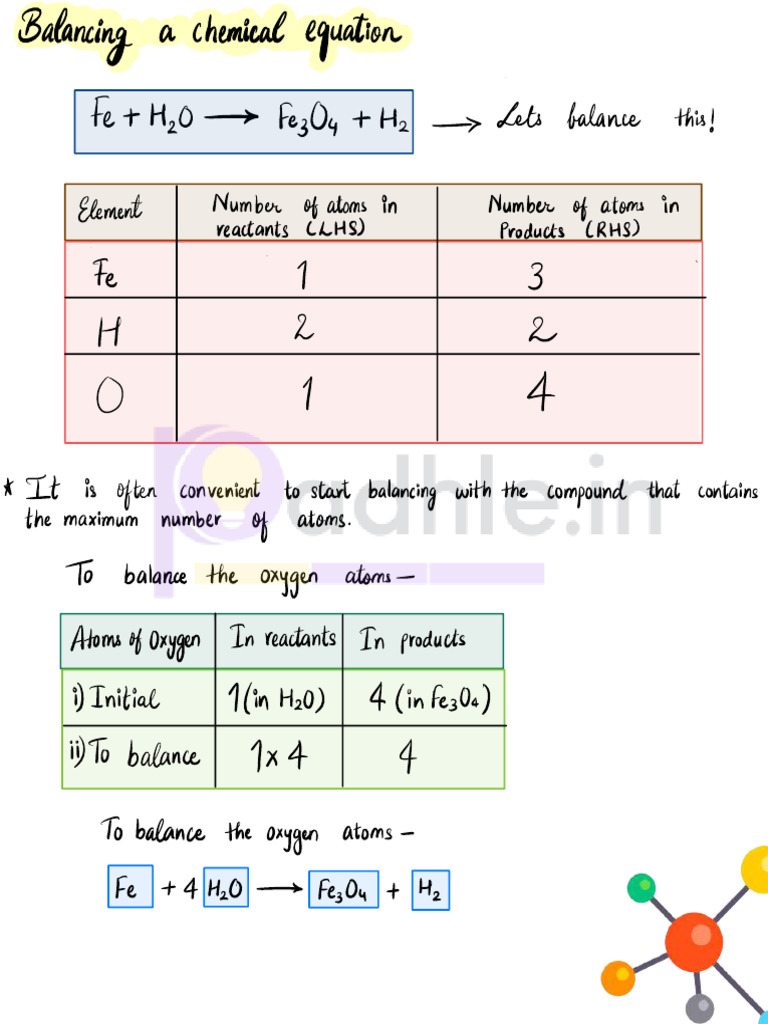 Balancing a chemical equation
Fe + H₂O ⟶ Fe₃O₄ + H₂ ⟶ Lets balance this!
Element Number of atoms in reactants (LHS) Number of atoms in Products (RHS)
Fe 1 3
H 2 2
O 1 4
* It is often convenient to start balancing with the compound that contains
the maximum number of atoms.
padhle.in
To balance the oxygen atoms —
Atoms of Oxygen In reactants In products
i) Initial 1 (in H₂O) 4 (in Fe₃O₄)
ii) To balance 1 x 4 4
To balance the oxygen atoms —
Fe + 4 H₂O ⟶ Fe₃O₄ + H₂